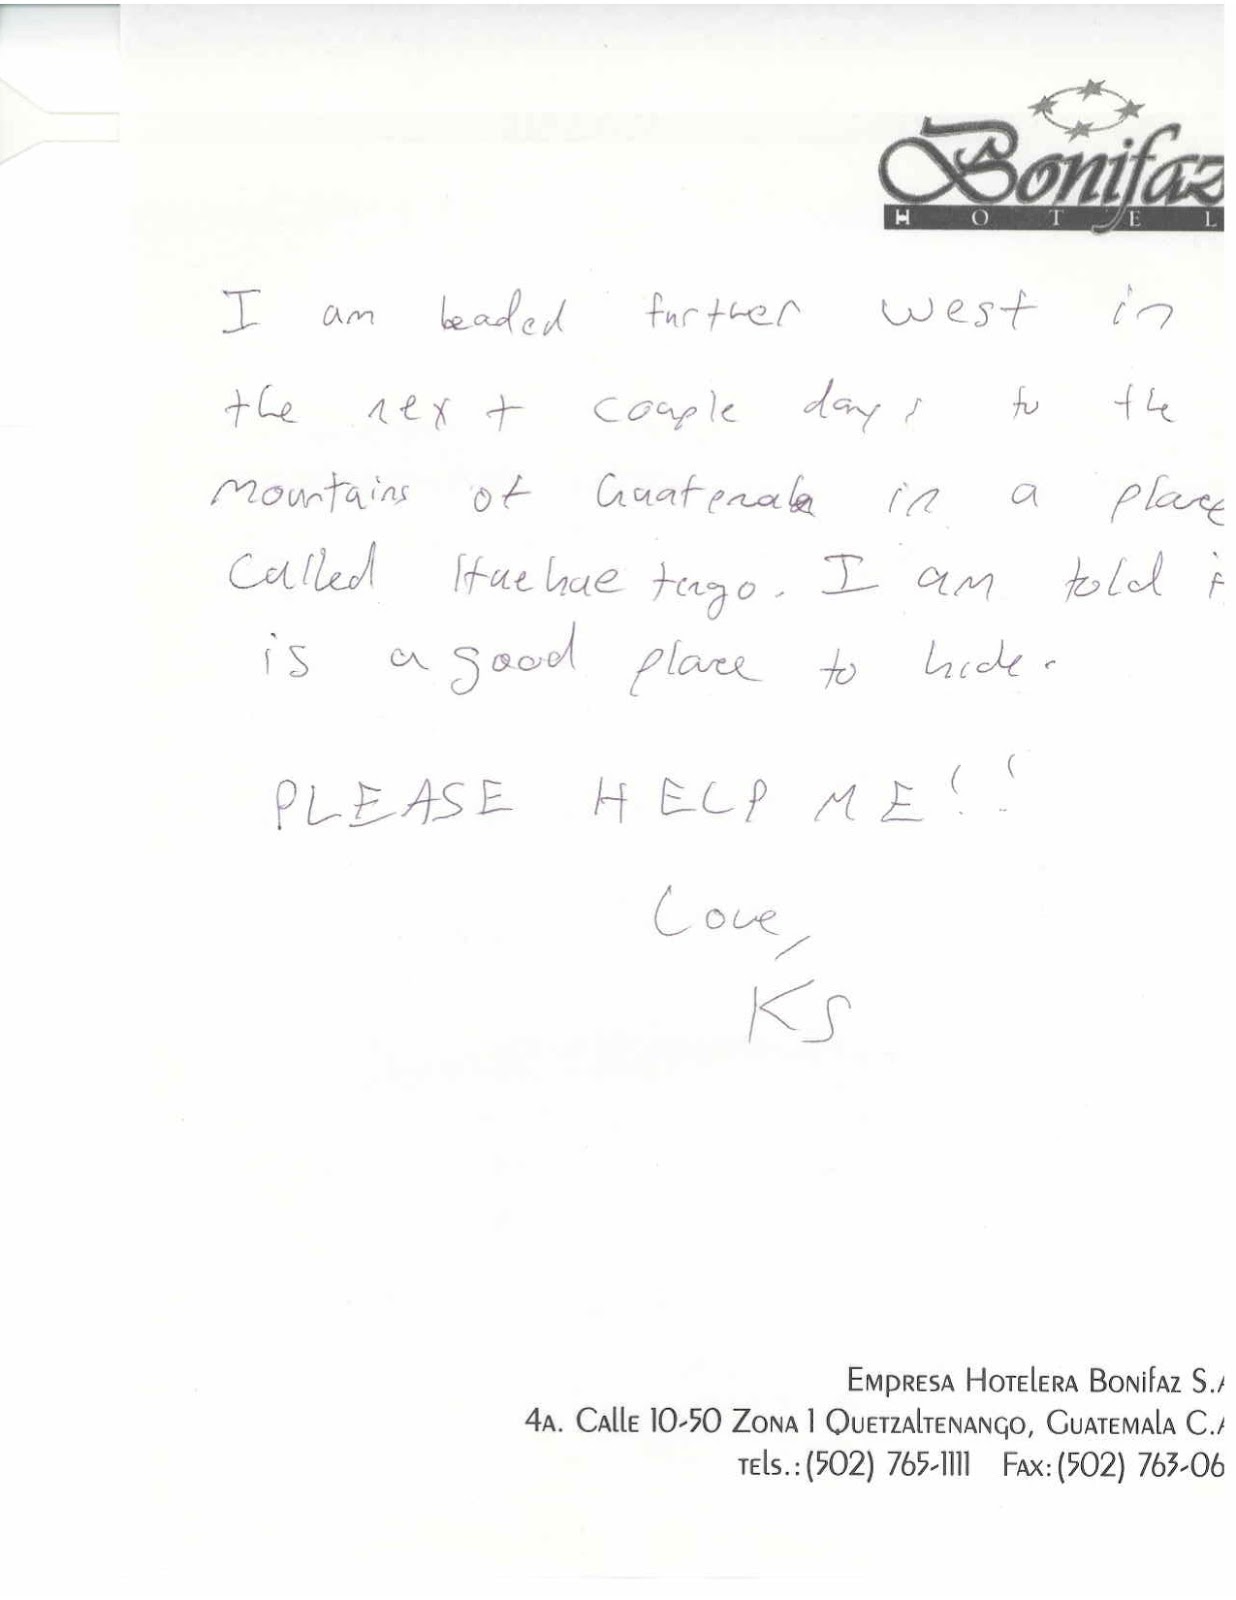 Bonifaz
HOTEL
I am headed further west in
the next couple days to the
mountains of Guatemala in a place
called Huehuetengo. I am told i
is a good place to hide.
PLEASE HELP ME!!
Love,
KS
Empresa Hotelera Bonifaz S.A
4a. Calle 10-50 Zona 1 Quetzaltenango, Guatemala C.A
Tels.: (502) 765-1111 Fax: (502) 763-06